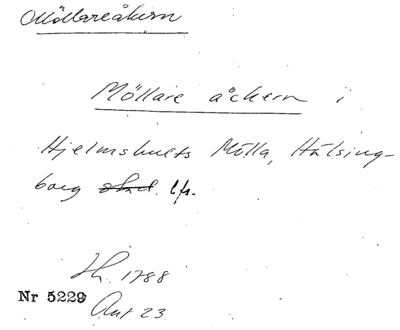 Möllareåkern
Möllare åckern i
Hjelmshults Mölla, Hälsing-
borg lfs.
Lh. 1788
Nr 5229
Ant 23